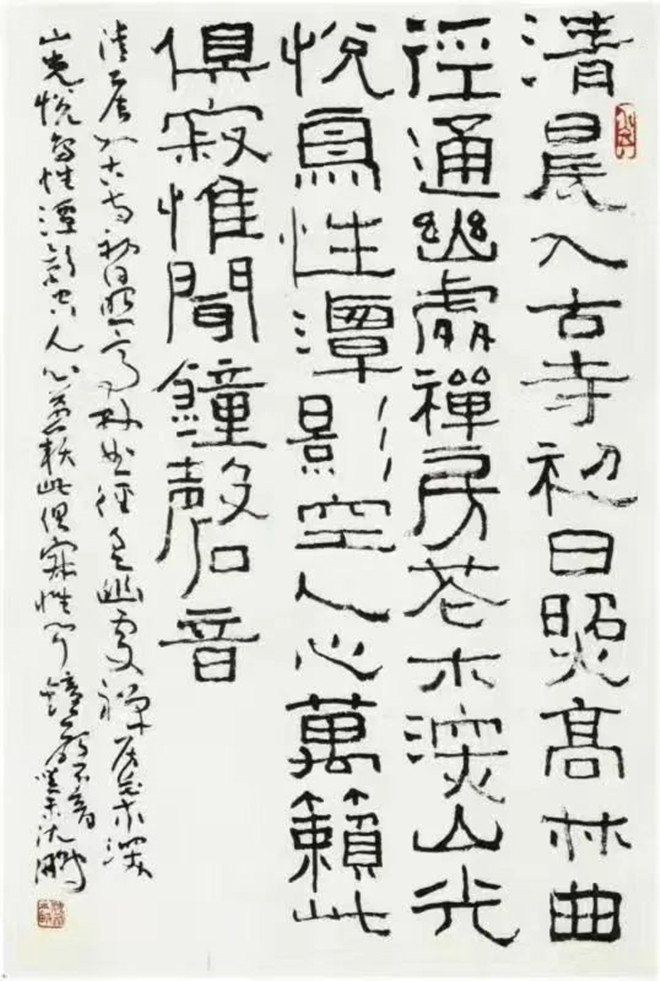 清晨入古寺初日照高林曲
徑通幽處禪房花木深山光
悅鳥性潭影空人心萬籟此
俱寂惟聞鐘磬音
清晨入古寺初日照高林曲徑通幽處禪房花木深
山光悅鳥性潭影空人心萬籟此俱寂惟聞鐘磬音沈鵬